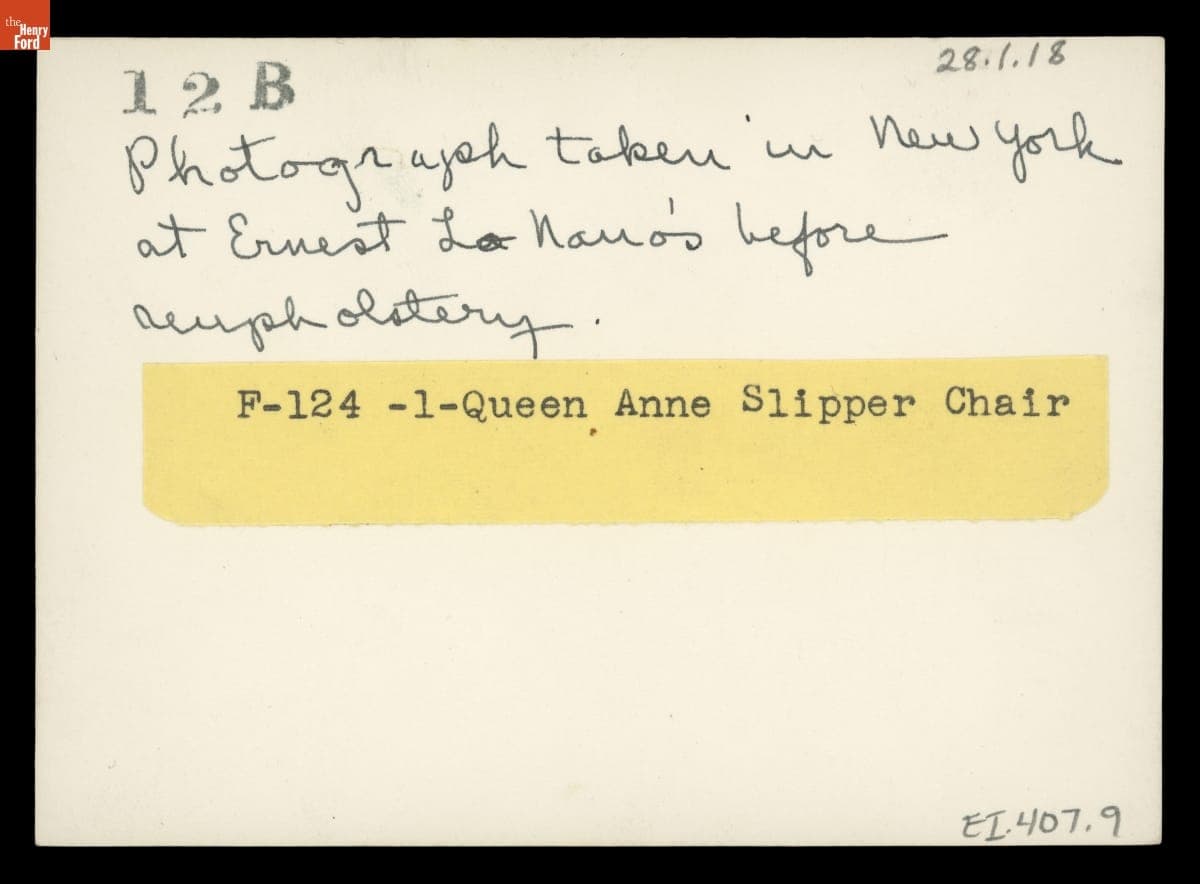 the
Henry
Ford
28.1.18
12B
Photograph taken in New York
at Ernest Lo Nano's before
reupholstery.
F-124 -1-Queen Anne Slipper Chair
EI.407.9